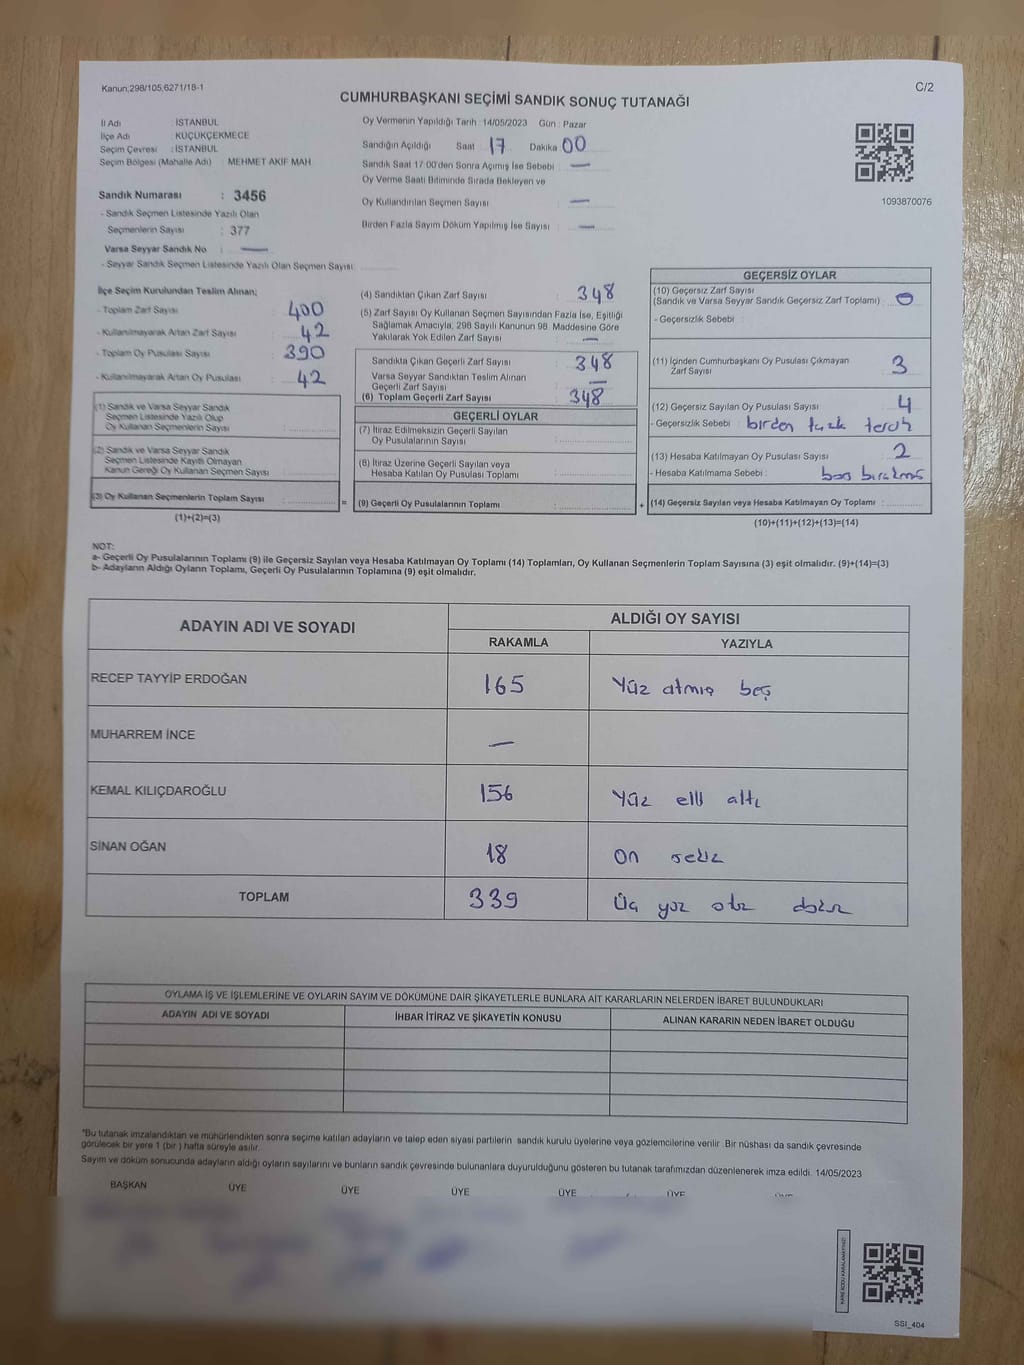 Kanun;298/105;6271/18-1
C/2
CUMHURBAŞKANI SEÇİMİ SANDIK SONUÇ TUTANAĞI
İl Adı : İSTANBUL
İlçe Adı : KÜÇÜKÇEKMECE
Seçim Çevresi : İSTANBUL
Seçim Bölgesi (Mahalle Adı) MEHMET AKİF MAH
Sandık Numarası : 3456
- Sandık Seçmen Listesinde Yazılı Olan
Seçmenlerin Sayısı : 377
Varsa Seyyar Sandık No : —
- Seyyar Sandık Seçmen Listesinde Yazılı Olan Seçmen Sayısı
Oy Vermenin Yapıldığı Tarih : 14/05/2023 Gün : Pazar
Sandığın Açıldığı Saat 17 Dakika 00
Sandık Saat 17:00'den Sonra Açımış İse Sebebi : —
Oy Verme Saati Bitiminde Sırada Bekleyen ve
Oy Kullandırılan Seçmen Sayısı : —
Birden Fazla Sayım Döküm Yapılmış İse Sayısı : —
1093870076
İlçe Seçim Kurulundan Teslim Alınan;
- Toplam Zarf Sayısı : 400
- Kullanılmayarak Artan Zarf Sayısı : 42
- Toplam Oy Pusulası Sayısı : 390
- Kullanılmayarak Artan Oy Pusulası : 42
(1) Sandık ve Varsa Seyyar Sandık
Seçmen Listesinde Yazılı Olup
Oy Kullanan Seçmenlerin Sayısı :
(2) Sandık ve Varsa Seyyar Sandık
Seçmen Listesinde Kayıtlı Olmayan
Kanun Gereği Oy Kullanan Seçmen Sayısı :
(3) Oy Kullanan Seçmenlerin Toplam Sayısı : =
(1)+(2)=(3)
(4) Sandıktan Çıkan Zarf Sayısı : 348
(5) Zarf Sayısı Oy Kullanan Seçmen Sayısından Fazla İse, Eşitliği
Sağlamak Amacıyla, 298 Sayılı Kanunun 98. Maddesine Göre
Yakılarak Yok Edilen Zarf Sayısı : —
Sandıkta Çıkan Geçerli Zarf Sayısı : 348
Varsa Seyyar Sandıktan Teslim Alınan
Geçerli Zarf Sayısı : —
(6) Toplam Geçerli Zarf Sayısı : 348
GEÇERLİ OYLAR
(7) İtiraz Edilmeksizin Geçerli Sayılan
Oy Pusulalarının Sayısı :
(8) İtiraz Üzerine Geçerli Sayılan veya
Hesaba Katılan Oy Pusulası Toplamı :
(9) Geçerli Oy Pusulalarının Toplamı : +
GEÇERSİZ OYLAR
(10) Geçersiz Zarf Sayısı
(Sandık ve Varsa Seyyar Sandık Geçersiz Zarf Toplamı) : 0
- Geçersizlik Sebebi :
(11) İçinden Cumhurbaşkanı Oy Pusulası Çıkmayan
Zarf Sayısı : 3
(12) Geçersiz Sayılan Oy Pusulası Sayısı : 4
- Geçersizlik Sebebi : birden fazla tercih
(13) Hesaba Katılmayan Oy Pusulası Sayısı : 2
- Hesaba Katılmama Sebebi : boş bırakmış
(14) Geçersiz Sayılan veya Hesaba Katılmayan Oy Toplamı :
(10)+(11)+(12)+(13)=(14)
NOT:
a- Geçerli Oy Pusulalarının Toplamı (9) ile Geçersiz Sayılan veya Hesaba Katılmayan Oy Toplamı (14) Toplamları, Oy Kullanan Seçmenlerin Toplam Sayısına (3) eşit olmalıdır. (9)+(14)=(3)
b- Adayların Aldığı Oyların Toplamı, Geçerli Oy Pusulalarının Toplamına (9) eşit olmalıdır.
ADAYIN ADI VE SOYADI
ALDIĞI OY SAYISI
RAKAMLA YAZIYLA
RECEP TAYYİP ERDOĞAN 165 Yüz atmış beş
MUHARREM İNCE —
KEMAL KILIÇDAROĞLU 156 Yüz elli altı
SİNAN OĞAN 18 On sekiz
TOPLAM 339 Üç yüz otuz dokuz
OYLAMA İŞ VE İŞLEMLERİNE VE OYLARIN SAYIM VE DÖKÜMÜNE DAİR ŞİKAYETLERLE BUNLARA AİT KARARLARIN NELERDEN İBARET BULUNDUKLARI
ADAYIN ADI VE SOYADI İHBAR İTİRAZ VE ŞİKAYETİN KONUSU ALINAN KARARIN NEDEN İBARET OLDUĞU
*Bu tutanak imzalandıktan ve mühürlendikten sonra seçime katılan adayların ve talep eden siyasi partilerin sandık kurulu üyelerine veya gözlemcilerine verilir. Bir nüshası da sandık çevresinde
görülecek bir yere 1 (bir) hafta süreyle asılır.
Sayım ve döküm sonucunda adayların aldığı oyların sayılarını ve bunların sandık çevresinde bulunanlara duyurulduğunu gösteren bu tutanak tarafımızdan düzenlenerek imza edildi. 14/05/2023
BAŞKAN ÜYE ÜYE ÜYE ÜYE ÜYE
SSI_404